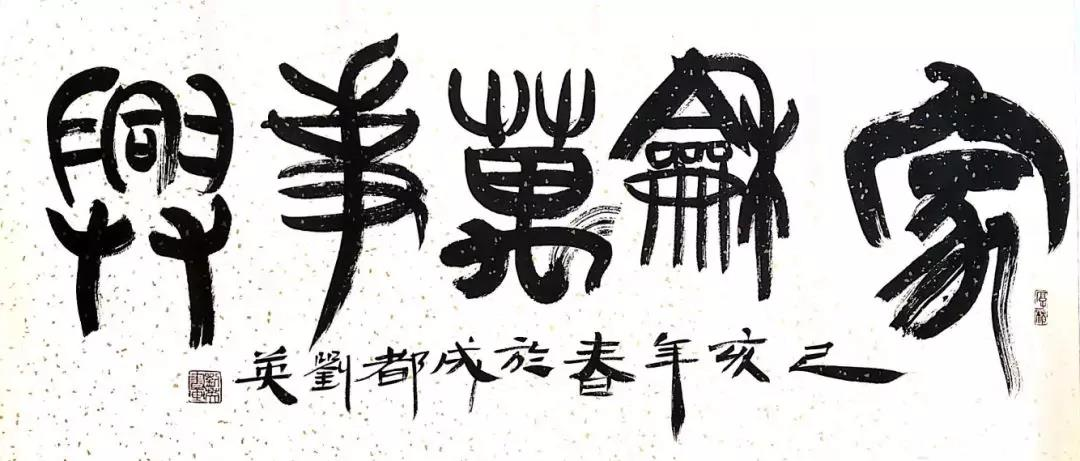 家龢萬事興
己亥年春於成都劉英